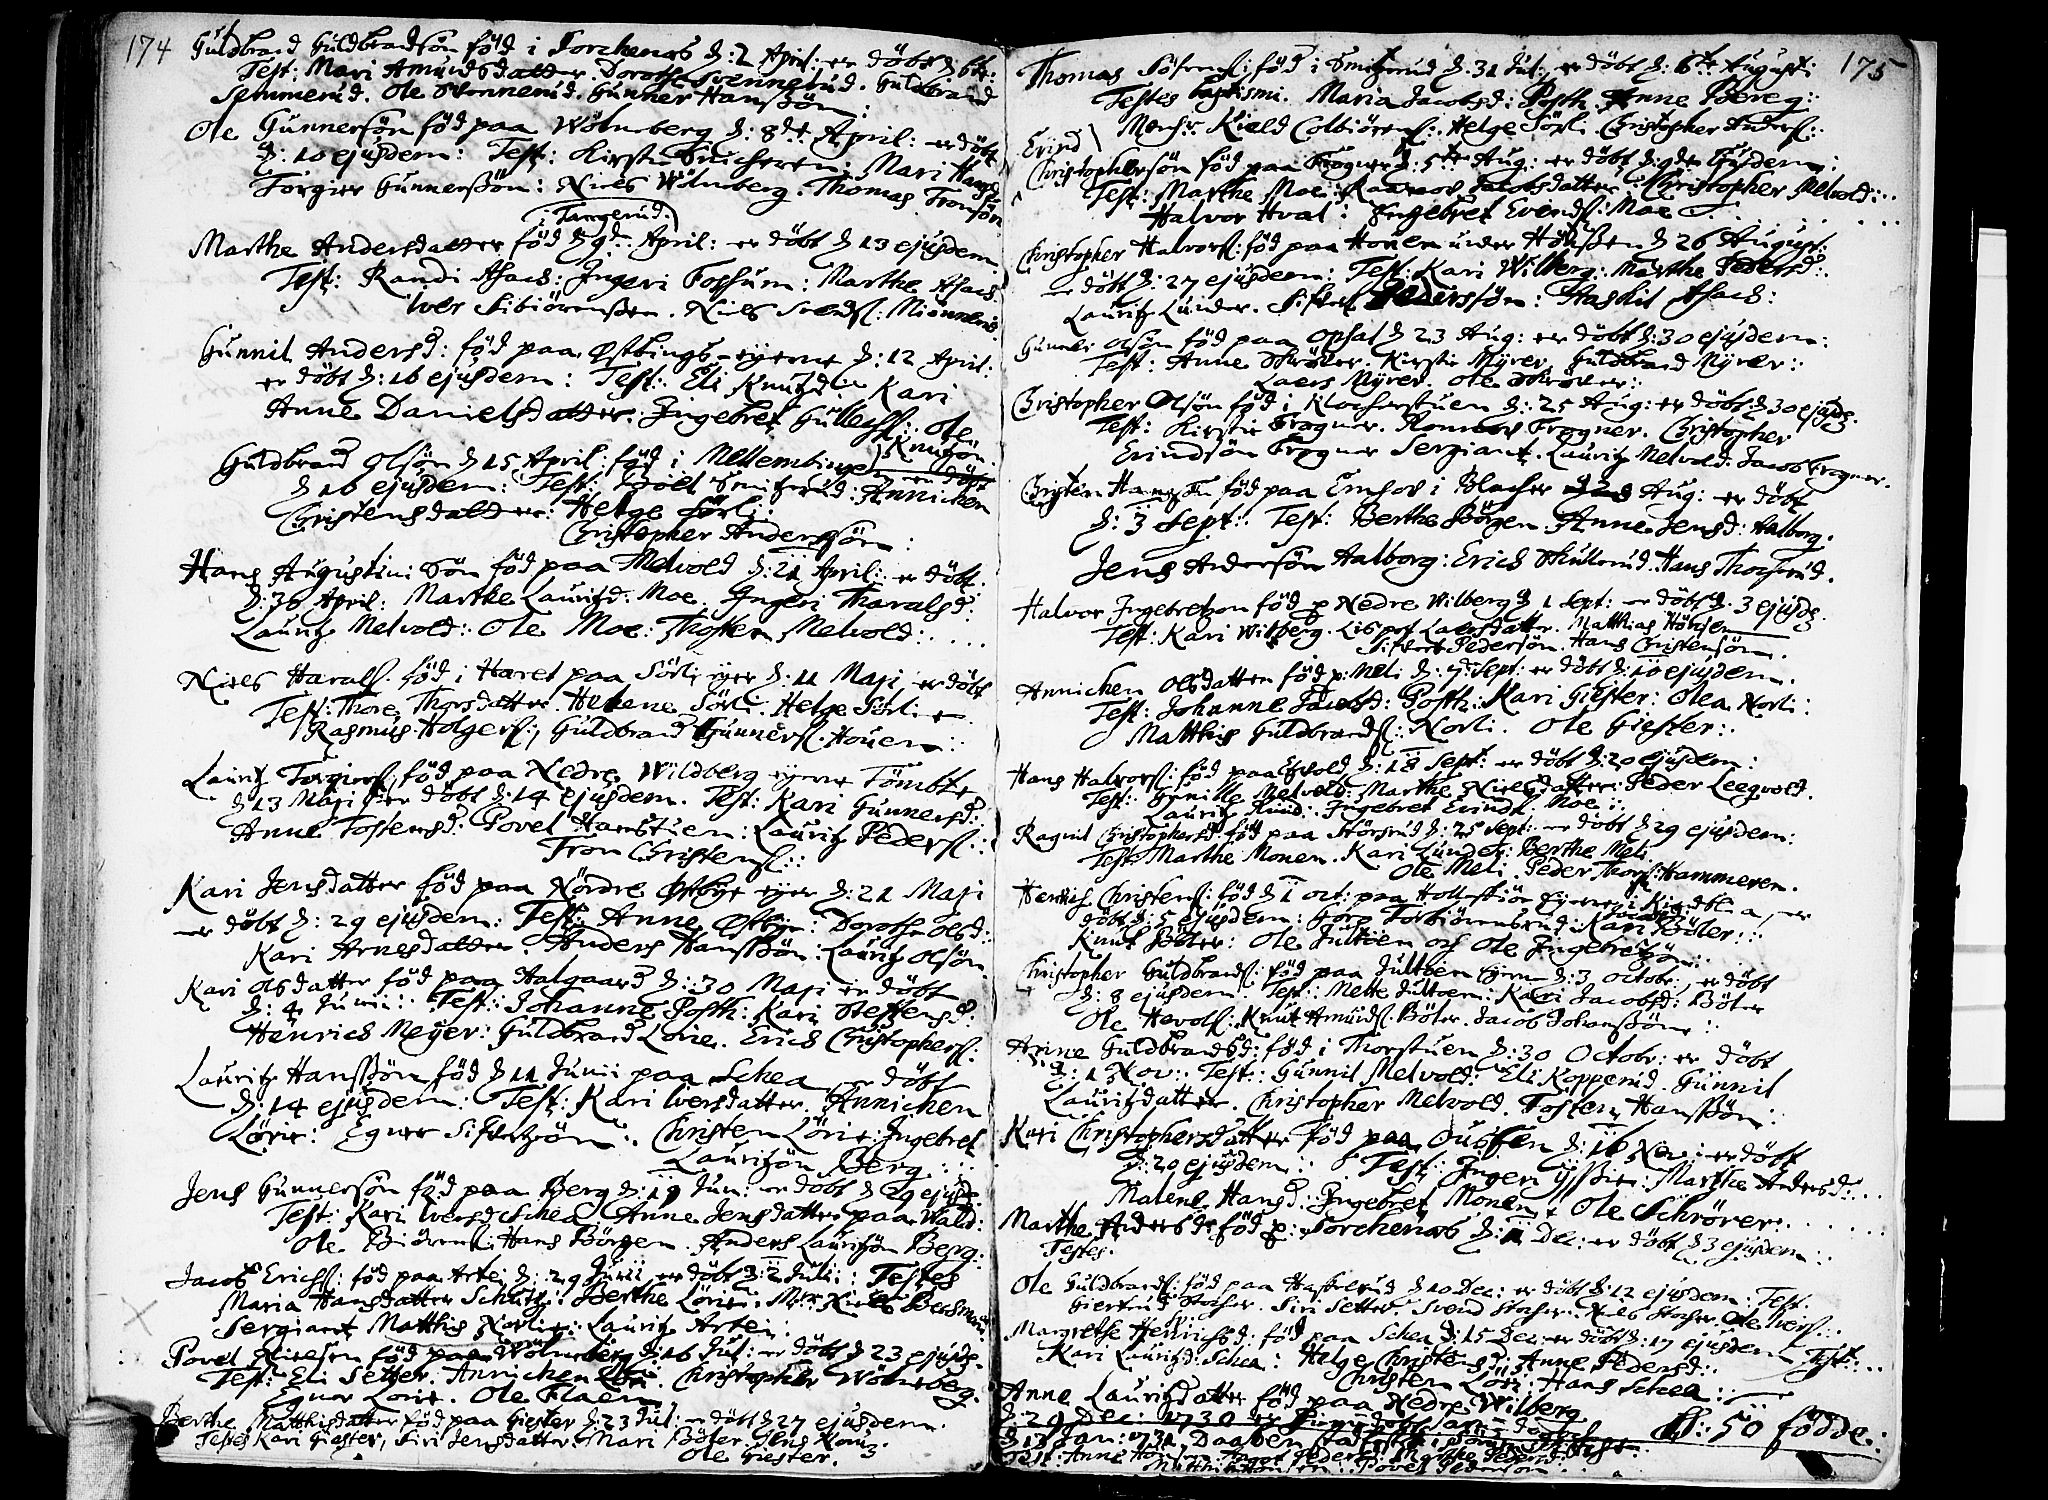 174
Guldbrand Guldbrandsön föd i Torchenes d: 2 April: er döbt d: 6te:
Test: Mari Amundsdatter. Dorothe Svennerud. Guldbrand
Semmerud. Ole Svennerud. Gunner Hansßön:
Ole Gunnersön föd paa Wölneberg d: 8de April: er döbt
d: 10 ejusdem: Test: Kirsti: Mari Hansd:
Torgier Gunnersßön: Niels Wölneberg. Thomas Tronsön
i Tangerud.
Marthe Andersdatter föd d 9de April: er döbt d 13 ejusdem.
Test: Randi Asach: Ingeri Fossum: Marthe Asach:
Iver Sibiörensßen. Niels Svends:
Gunnil Andersd: föd paa Østbings-eyerne d: 12 April:
er döbt d: 16 ejusdem: Test: Eli Knutzd: Kari
Anne Danielsdatter. Ingebret Gullechs: Ole
Knutzön.
Guldbrand Olsön d 15 April föd i Mellembinge er döbt
d 16 ejusdem: Test: Smitzrud: Annichen
Christensdatter: Helge Sörli:
Christopher Andersßön:
Hans Augustini Sön föd paa Melvold d: 21 April: er döbt
d: 30 April: Marthe Lauritzd: Moe. Ingeri Tharalsd:
Lauritz Melvold: Ole Moe: Thosten Melvold:
Niels Harals: föd i Haret paa Sörli eyer d: 11 Maji er döbt
Test: Thore Thorsdatter. Helene Sörli. Helge Sörli
Rasmus Holgers:, Guldbrand Gunners. Houen:
Lauritz Torgiers: föd paa Nedre Wildberg eyerne Tömbte
d 13 Maji er döbt d: 14 ejusdem. Test: Kari Gunnersd:
Anne Tostensd: Povel Hamstuen: Lauritz Peders:
Tron Christens:
Kari Jensdatter föd paa Nördre Østbye eyer d: 21 Maji
er döbt d: 29 ejusdem: Test: Anne Østbye: Dorothe Olsd:
Kari Arnesdatter. Anders Hansßön: Lauritz Olsön
Kari Olsdatter föd paa Halgaard d: 30 Maji er döbt
d: 4 Junii: Test: Johanne Posth: Kari Steffensd:
Henrich Meyer: Guldbrand Lörie. Erich Christophers:
Lauritz Hansßön föd d 11 Junii paa Schea er döbt
d: 14 ejusdem: Test: Kari Iversdatter. Annichen
Lörie: Egner Siffertzön: Christen Lörie: Ingebret
Lauritzön Berg:
Jens Gunnersön föd paa Berg d: 19 Jun: er döbt d 29 ejusd:
Test: Kari Iversd Schea Anne Jensdatter paa Wald:
Ole Biörens: Hans Börgen. Anders Lauritzön Berg:
Jacob Erichs: föd paa Artei d: 29 Junii er döbt d: 2 Julii: Testes
Maria Hansdatter Schultz: Berthe Lörie: Mr: Niels Bechman
Sergiant Matthis Norlie: Lauritz Artei:
Povel Nielsen föd paa Wölneberg d: 16 Jul: er döbt d 23 ejusd:
Test: Eli Setter. Annichen Löri. Christopher Wölneberg.
Egner Lörie. Ole Flaen
Berthe Matthisdatter föd paa Giester d: 23 Jul: er döbt d 27 ejusdem.
Testes Kari Giester, Siri Jensdatter. Mari Böler. Jens
Ole Giester.
175
Thomas Sörens: föd i Smitzrud d 31 Jul: er döbt d: 6te Augusti
Testes baptismi. Maria Jacobsd: Posth. Anne Bereg:
Monsr. Kield Colbiörens: Helge Sörli Christopher Anders:
Evind
Christophersön föd paa Frogner d: 5te Aug: er döbt d 9de Ejusdem:
Test: Marthe Moe: Jacobsdatter: Christopher Melvold:
Halvor Hval: Ingebret Evends: Moe
Christopher Halvors: föd paa Houen under Höußen d 26 August:
er döbt d: 27 ejusdem: Test: Kari Wilberg: Marthe Pedersd:
Lauritz Lunder. Siffert Pedersßön: Haskil Asach:
Gunner Olsön föd paa Opsal d 23 Aug: er döbt d: 30 ejusdem:
Test: Anne Schröder. Kirstie Myrer. Guldbrand Myrer:
Laers Myrer. Ole Schröder:
Christopher Olsön föd i Klocherstuen d: 25 Aug: er döbt d 30 ejusd.
Test: Kirstie Frogner. Frogner. Christopher
Evindsön Frogner Sergiant. Lauritz Melvold: Jacob Frogner.
Christen Hansßön föd paa Emhos i Blacher Aug: er döbt
d: 3 Sept: Test: Berthe Börgen Anne Jensd: Aalborg.
Jens Andersön Aalborg: Erich Skullerud. Hans Thochrud.
Halvor Ingebretzon föd p Nedre Wilberg d 1 Sept: er döbt d. 3 ejusd.
Test: Kari Wilberg. Lisped Laersdatter. Matthias Höußen
Siffert Pedersön. Hans Christensön.
Annichen Olsdatter föd p: Meli d: 7de Sept: er döbt d: 10 ejusdem.
Test: Johanne Jacobsd: Posth: Kari Giester: Olea Norli:
Matthis Guldbrands: Norli. Ole Giester:
Hans Halvors: föd paa Egvold d: 18 Sept: er döbt d: 20 ejusdem:
Test: Gunille Melvold: Marthe Nielsdatter: Peder Leegvold.
Lauritz Rud: Ingebret Evinds Moe:
Ragnil Christophersd: föd paa Störsrud d: 25 Sept: er döbt d 29 ejusdem:
Test: Marthe Monen. Kari Lunder: Berthe Meli
Ole Meli. Peder Thors: Hammeren.
Henrich Christens: föd d 1 Oct: paa Eyerne i er
döbt d: 5 ejusdem: Torbiörensrud: Kari Böler:
Knut Böler: Ole Jultoen och Ole Ingebretzön:
Christopher Guldbrands: föd paa Jultoen Eyern d: 3 Octobr:, er döbt
d: 8 ejusdem. Test: Mette Jultoen: Kari Jacobsd: Böler
Ole Hevols: Knut Amunds: Böler. Jacob Johansßön:
Anne Guldbrandsd: föd i Thorstuen d: 30 Octobr: er döbt
d: 1 Nov: Test: Gunnil Melvold: Eli Kopperud. Gunnil
Lauritzdatter. Christopher Melvold. Tosten Hansßön:
Kari Christophersdatter föd paa Ousten d: 16 Nov: er döbt
d: 20 ejusdem: Test: Ingeri: Marthe Andersd:
Malene Hansd: Ingebret Monen. Ole Schröver:
Marthe Andersdr föd p: Torchenes d: 1 Dec: er döbt d 3 ejusdem:
Testes.
Ole Guldbrands: föd paa Haffelrud d 10 Dec: er döbt d: 12 ejusdem: Test.
Giertrud Stocher. Siri Setter: Svend Stocher: Niels Stocher. Ole Ivers:
Margrethe Henrichsd: föd paa Schea d: 15 Dec: er döbt d: 17 ejusdem Test:
Kari Lauritzd: Schea: Helge Christensd: Anne Pedersd:
Christen Löri: Hans Schea:
Anne Lauritzdatter föd paa Nedre Wilberg
d: 29 Dec: 1730 er döbt
d: 1 Jan: 1731 Daaben
Test: Anne
Povel Pedersön
ll: 50 födde.